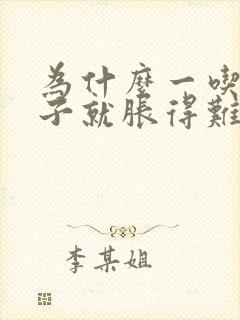 為什麼一喫
子就脹得難
李某姐